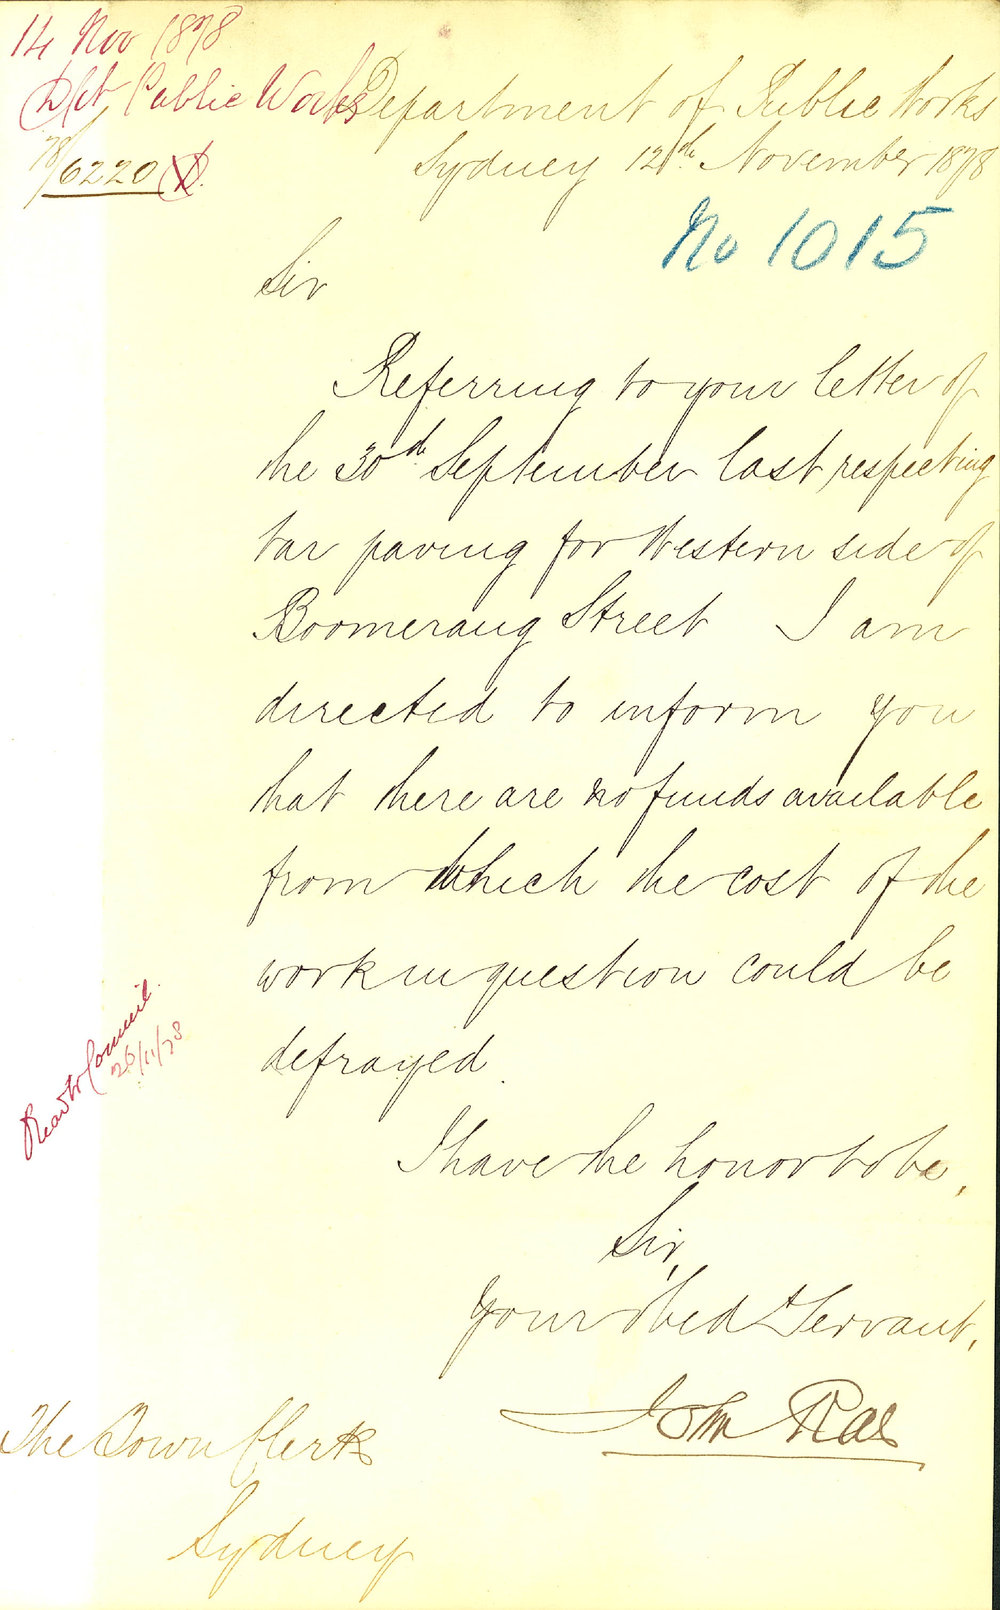 14 Nov 1878
Dpt Public Works
78/6220 D.
Department of Public Works
Sydney 12th November 1878
No 1015
Sir
Referring to your letter of
the 30th September last respecting
tar paving for Western side of
Boomerang Street I am
directed to inform you
that there are no funds available
from which the cost of the
work in question could be
defrayed.
I have the honor to be,
Sir,
Your obed t Servant,
John Rae
The Town Clerk
Sydney
Read to Council.
26/11/78